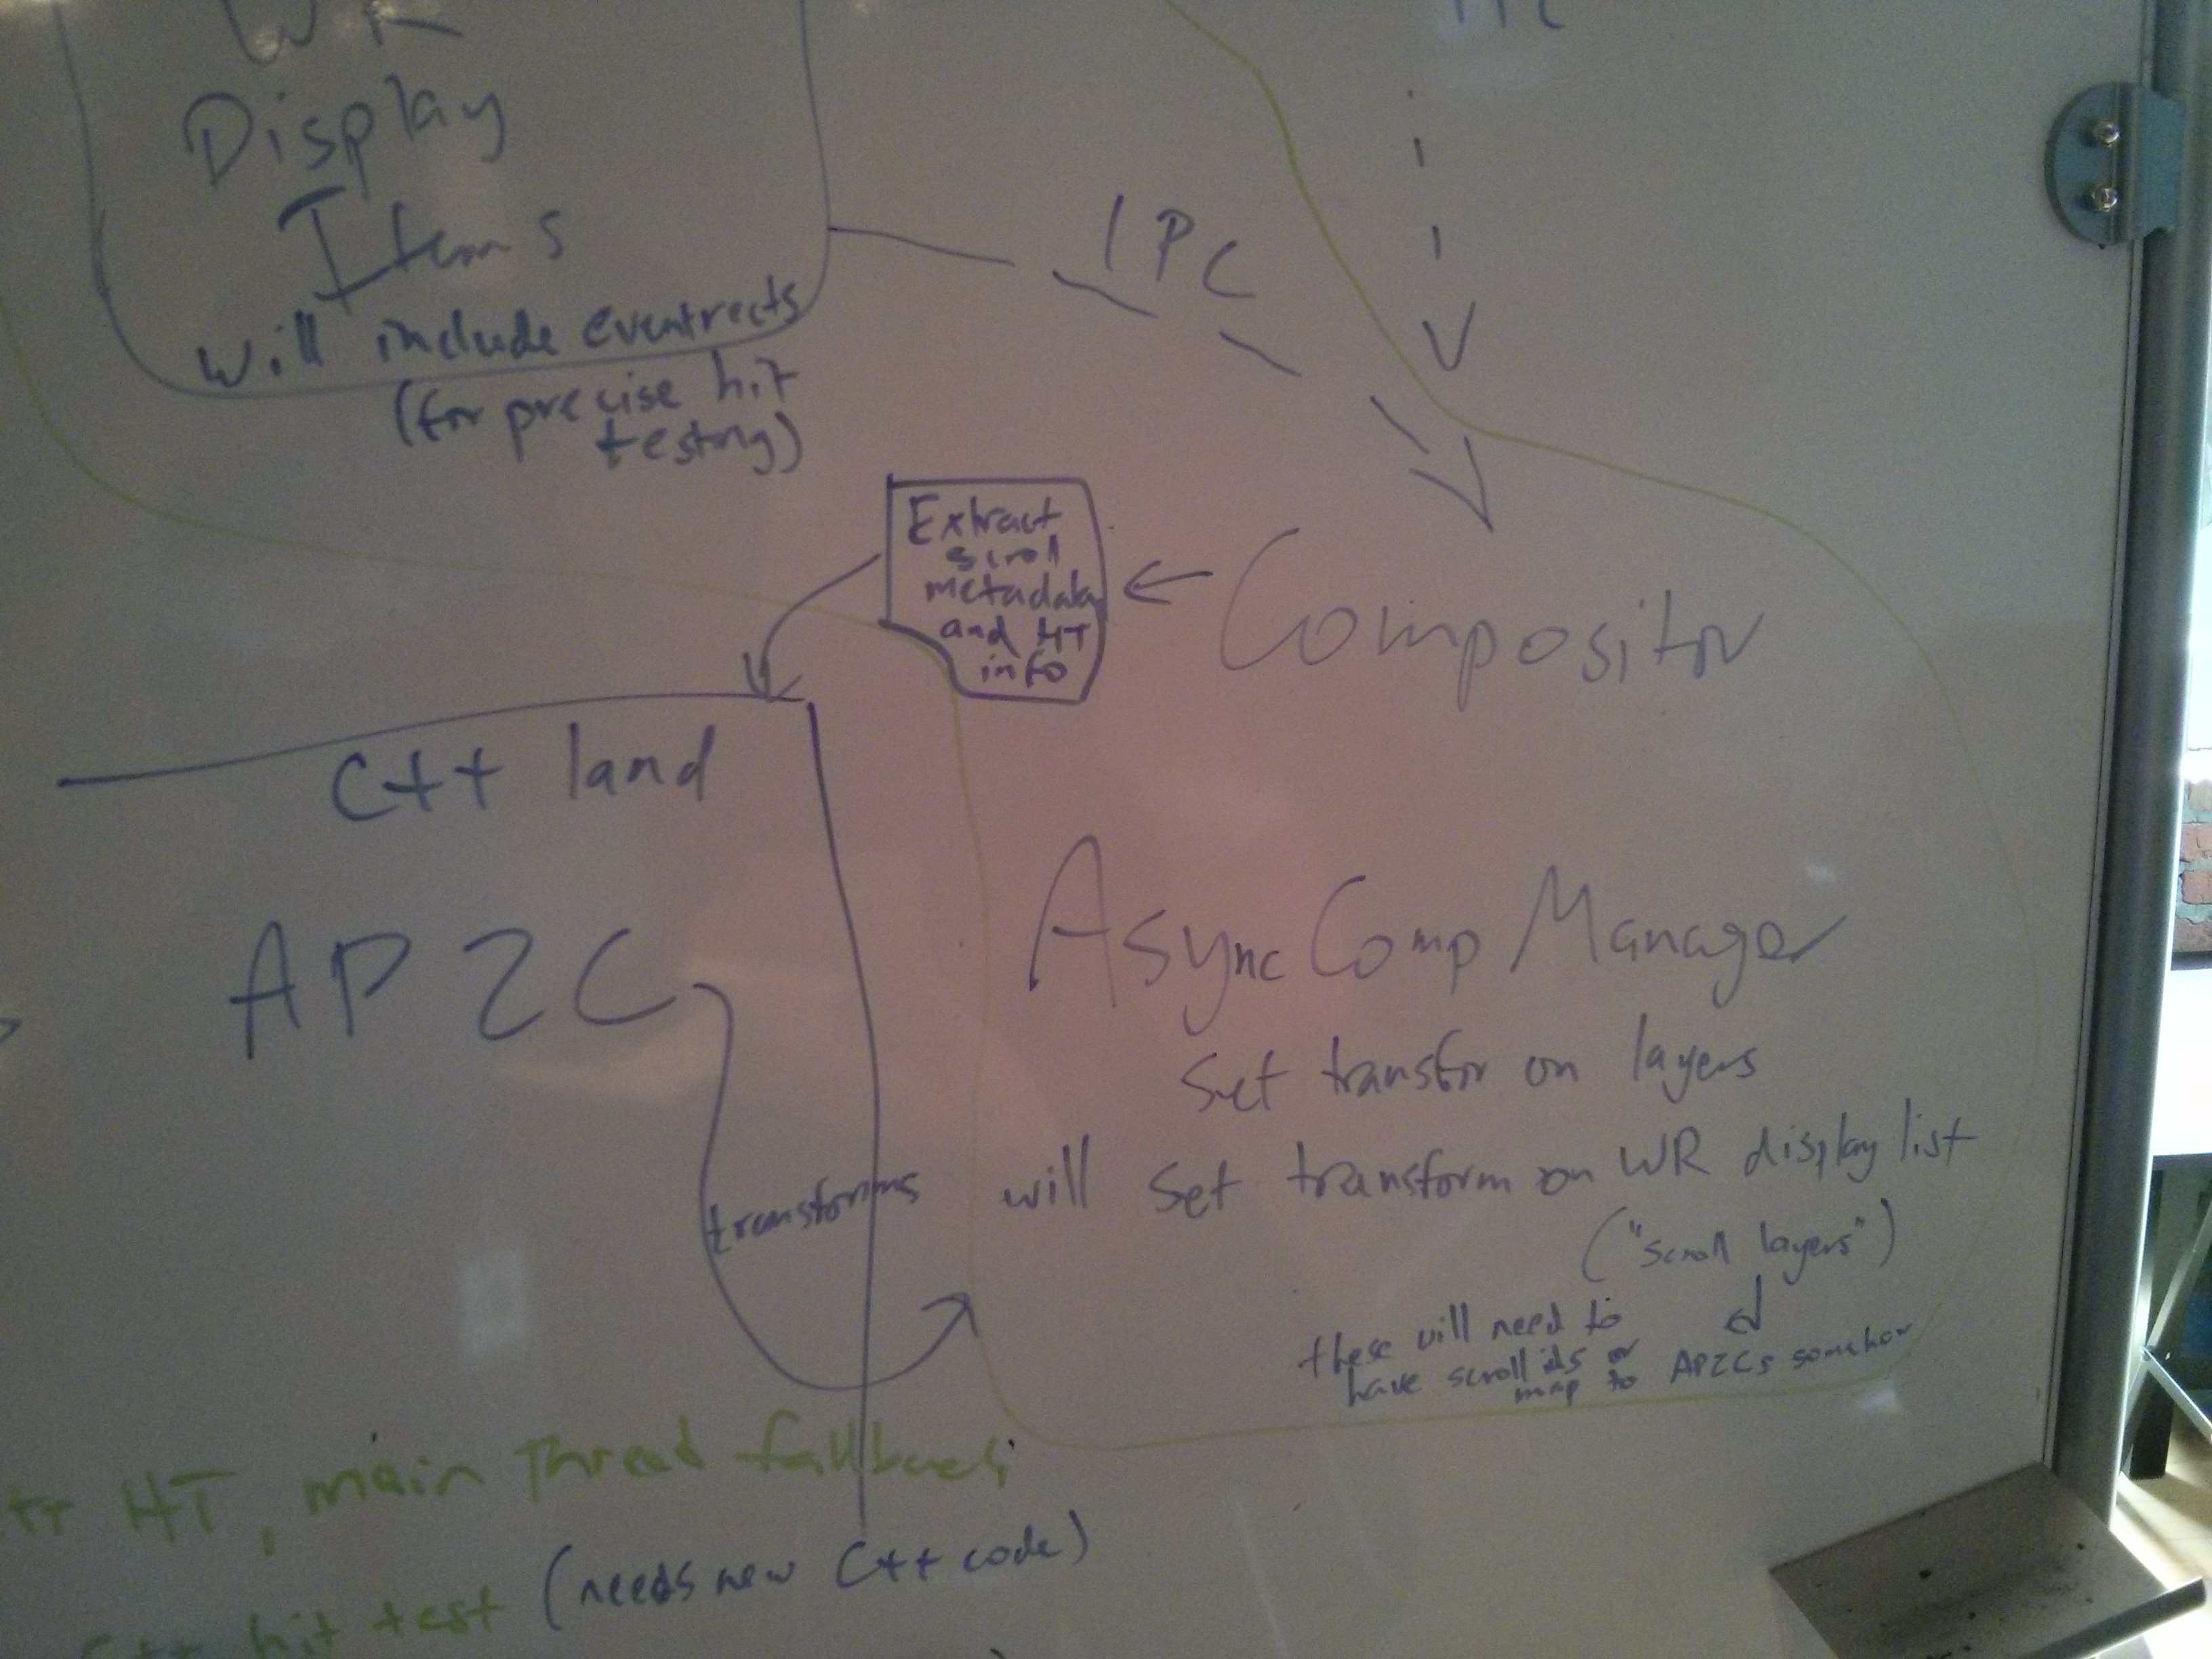 WR
Display
Items
will include eventrects
(for precise hit
testing)
IPC
IPC
Extract
scroll
metadata
and HT
info
Compositor
C++ land
APZC
transforms
AsyncCompManager
Set transfor on layers
will set transform on WR display list
("scroll layers")
these will need to
have scroll ids or
map to APZCs somehow
HT, main thread fallback
C++ hit test (needs new C++ code)